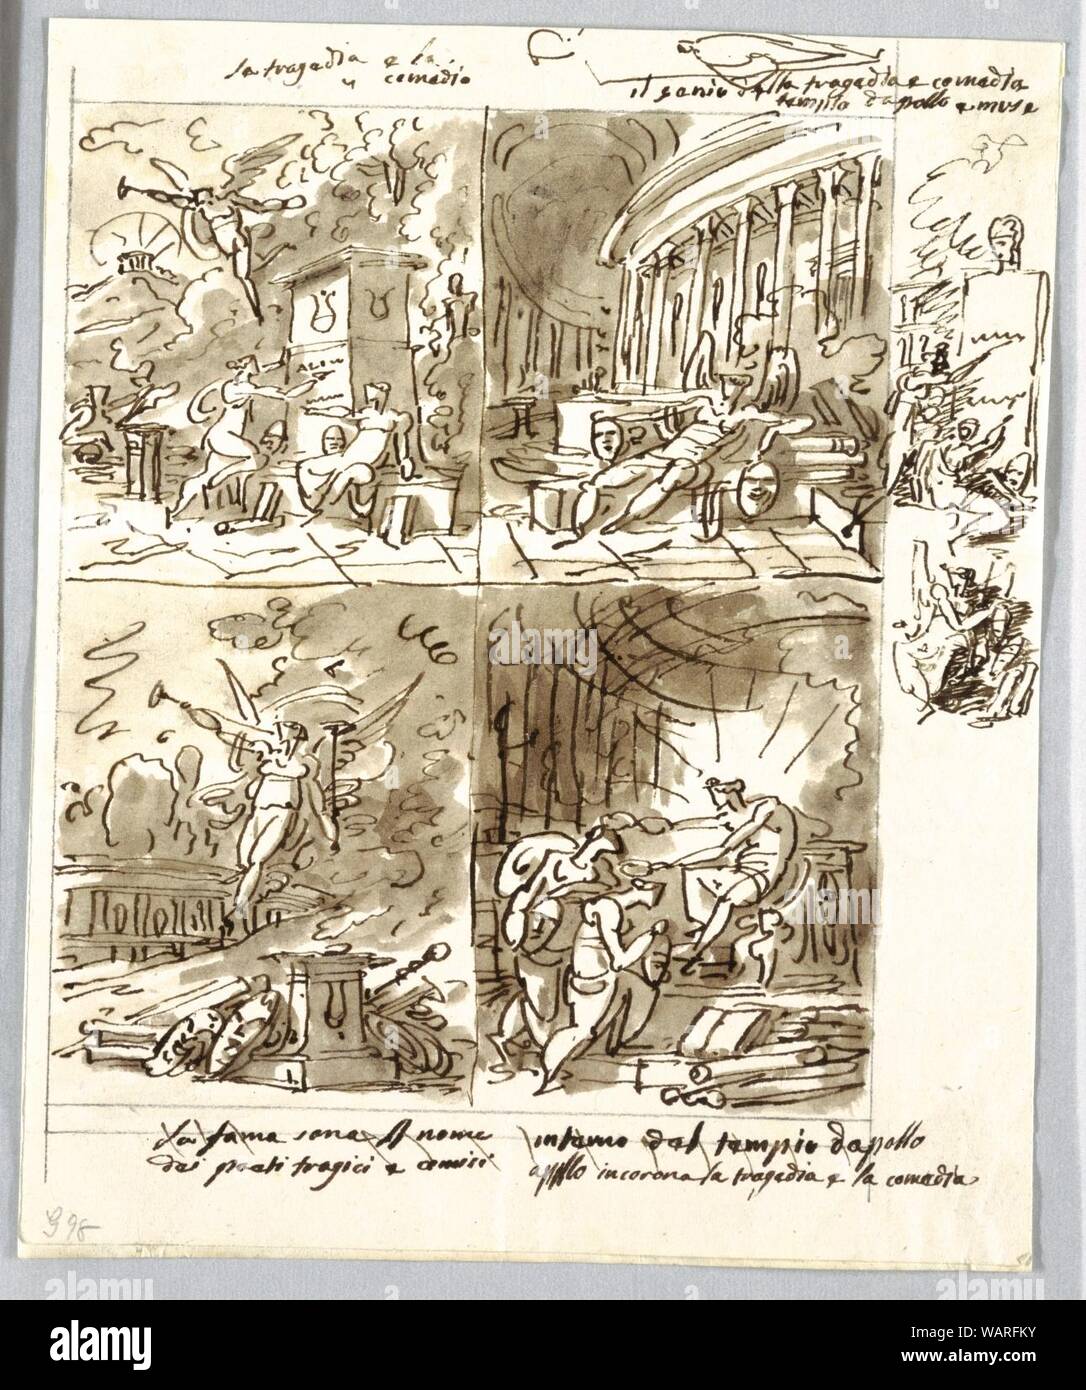 la tragedia e la
comedia
il genio della tragedia e comedia
tempio dapollo e muse
la fama sona il nome
dei poeti tragici e comici
interno del tempio dapollo
apollo incorona la tragedia e la comedia
G 98
alamy
alamy
Image ID: WARFKY
www.alamy.com